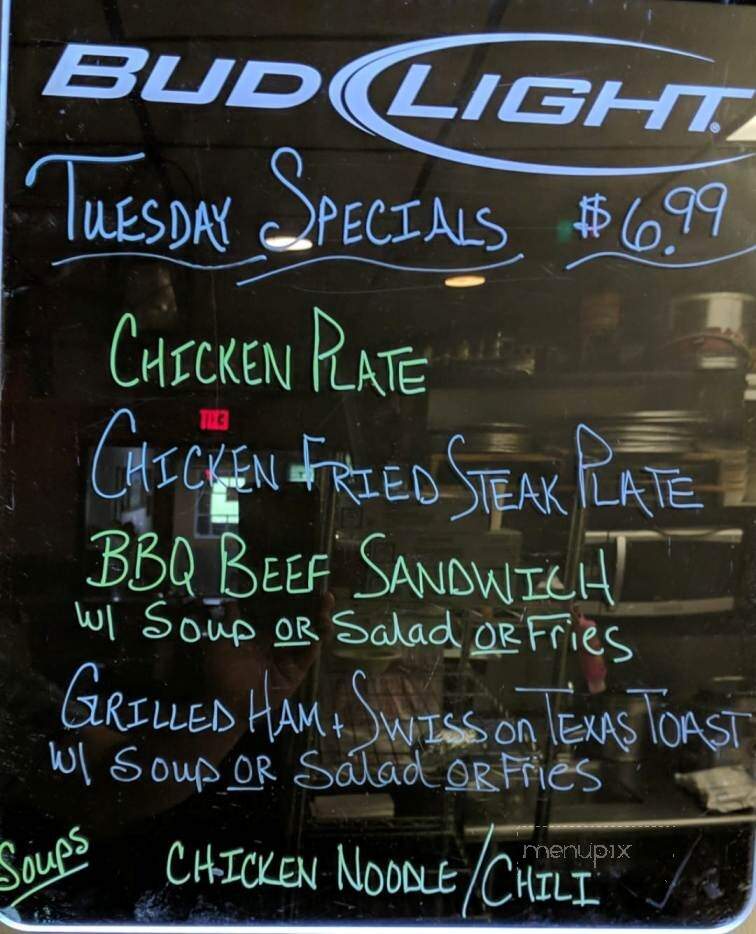 BUD LIGHT
TUESDAY SPECIALS $6.99
CHICKEN PLATE
CHICKEN FRIED STEAK PLATE
BBQ BEEF SANDWICH
W/ Soup OR Salad OR Fries
GRILLED HAM + SWISS on TEXAS TOAST
W/ Soup OR Salad OR Fries
Soups CHICKEN NOODLE/CHILI
menupix